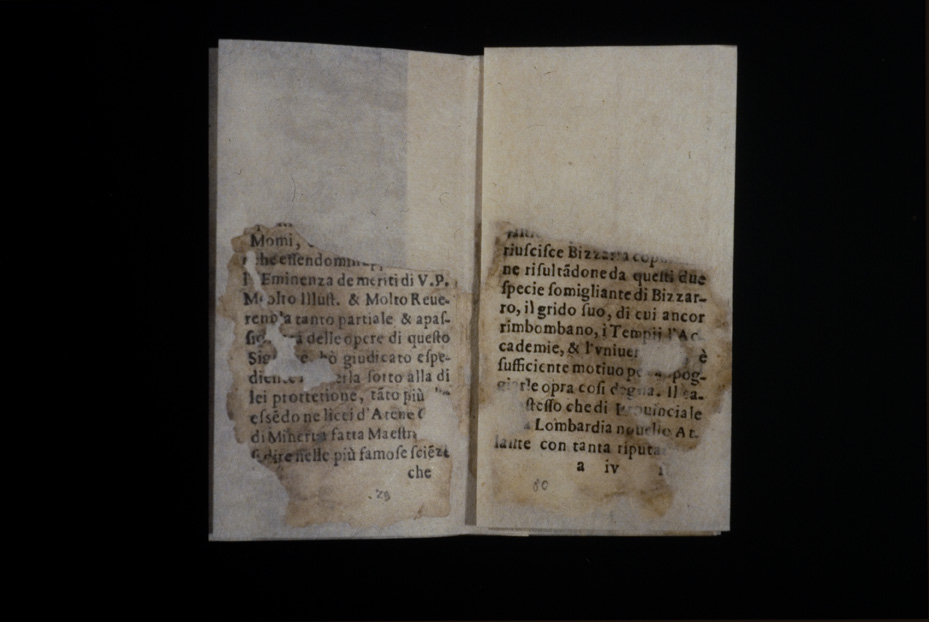 Momi,
che essendomi
l'Eminenza de meriti di V.P.
Molto Illuſt. & Molto Reue-
renda tanto partiale & apaſ-
delle opere di queſto
hò giudicato eſpe-
ſotto alla di
lei protettione, tāto più
eſsēdo ne licei d'Atene
di Minerua fatta Maeſtra
ſedire nelle più famoſe ſciēze
che
29
riuſciſce Bizzaria
ne riſultādone da queſti due
ſpecie ſomigliante di Bizzar-
ro, il grido ſuo, di cui ancor
rimbombano, i Tempij l'Ac-
cademie, & l'vniuer è
ſufficiente motiuo
opra coſi degna. Il
ſteſſo che di Prouinciale
Lombardia nouello At-
lante con tanta riputa
a iv
80